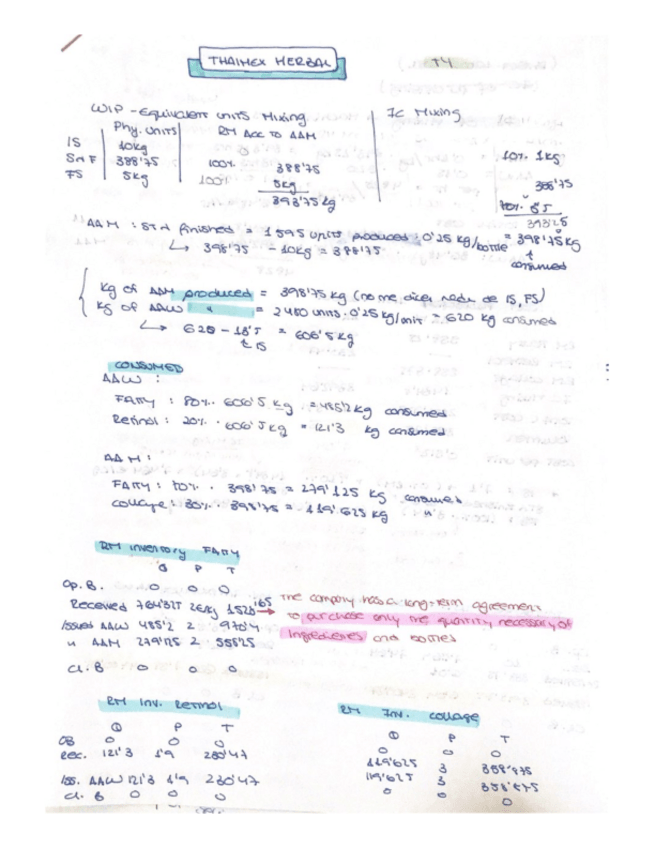 THAIMEX HERBAL
T4
WIP - Equivalent units Mixing
IC Mixing
Phy. units RM Acc to AAM
IS 10kg 0 10% 1kg
S n F 388'75 100% 388'75 388'75
FS 5kg 100% 5kg 70%
393'75 kg 393'25
AAM: ST n finished = 1595 units produced · 0'25 kg/bottle = 398'75 kg
↳ 398'75 - 10kg = 388'75 consumed
Kg of AAM produced = 398'75 kg (no me dicen nada de IS, FS)
Kg of AAW " = 2480 units · 0'25 kg/unit = 620 kg consumed
↳ 620 - 13'5 = 606'5 kg
IS
CONSUMED
AAW :
FATTY : 80% · 606'5 kg = 485'2 kg consumed
Retinol : 20% · 606'5 kg = 121'3 kg consumed
AAM :
FATTY : 70% · 398'75 = 279'125 kg consumed
collage : 30% · 398'75 = 119'625 kg "
RM inventory FATTY
Q P T
Op. B. 0 0 0
Received 764'325 2€/kg 1528'65 → The company has a long-term agreement
Issued AAW 485'2 2 970'4 to purchase only the quantity necessary of
" AAM 279'125 2 558'25 Ingredients and bottles
Cl. B 0 0 0
RM Inv. Retinol
RM Inv. collage
Q P T
Q P T
OB 0 0 0
0 0 0
Rec. 121'3 1'9 230'47
119'625 3 358'875
Iss. AAW 121'3 1'9 230'47
119'625 3 358'875
Cl. B 0 0 0
0 0 0